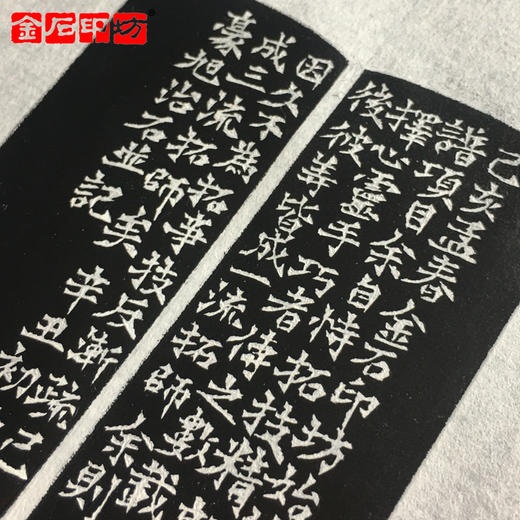 金石印坊
己亥孟春金石印坊始
譜項目余自恃拓技精
擇心靈手巧者傳之數載
後彼等皆成一流拓師余則
因久不為拓事技反漸疏已
成三流拓師矣辛丑初
豪旭治石並記